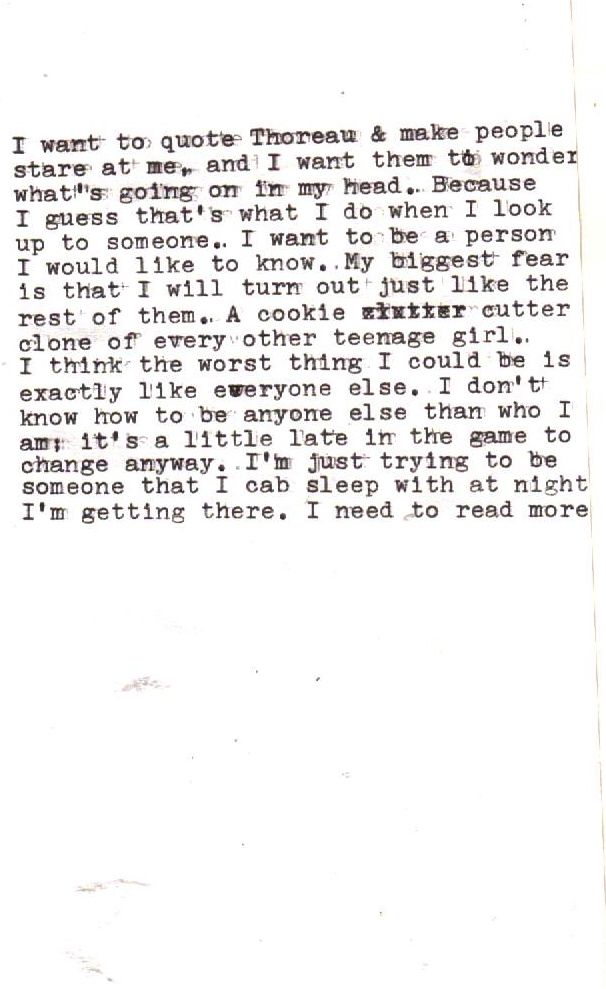 I want to quote Thoreau & make people
stare at me. and I want them to wonder
what's going on in my head. Because
I guess that's what I do when I look
up to someone.. I want to be a person
I would like to know.. My biggest fear
is that I will turn out just like the
rest of them. A cookie cutter
clone of every other teenage girl..
I think the worst thing I could be is
exactly like everyone else. I don't
know how to be anyone else than who I
am; it's a little late in the game to
change anyway. I'm just trying to be
someone that I cab sleep with at night
I'm getting there. I need to read more